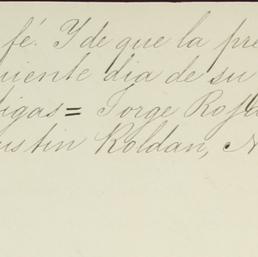 fé. Y de que la pre
uiente dia de su
igas = Jorge Rojas
ustin Roldan, N